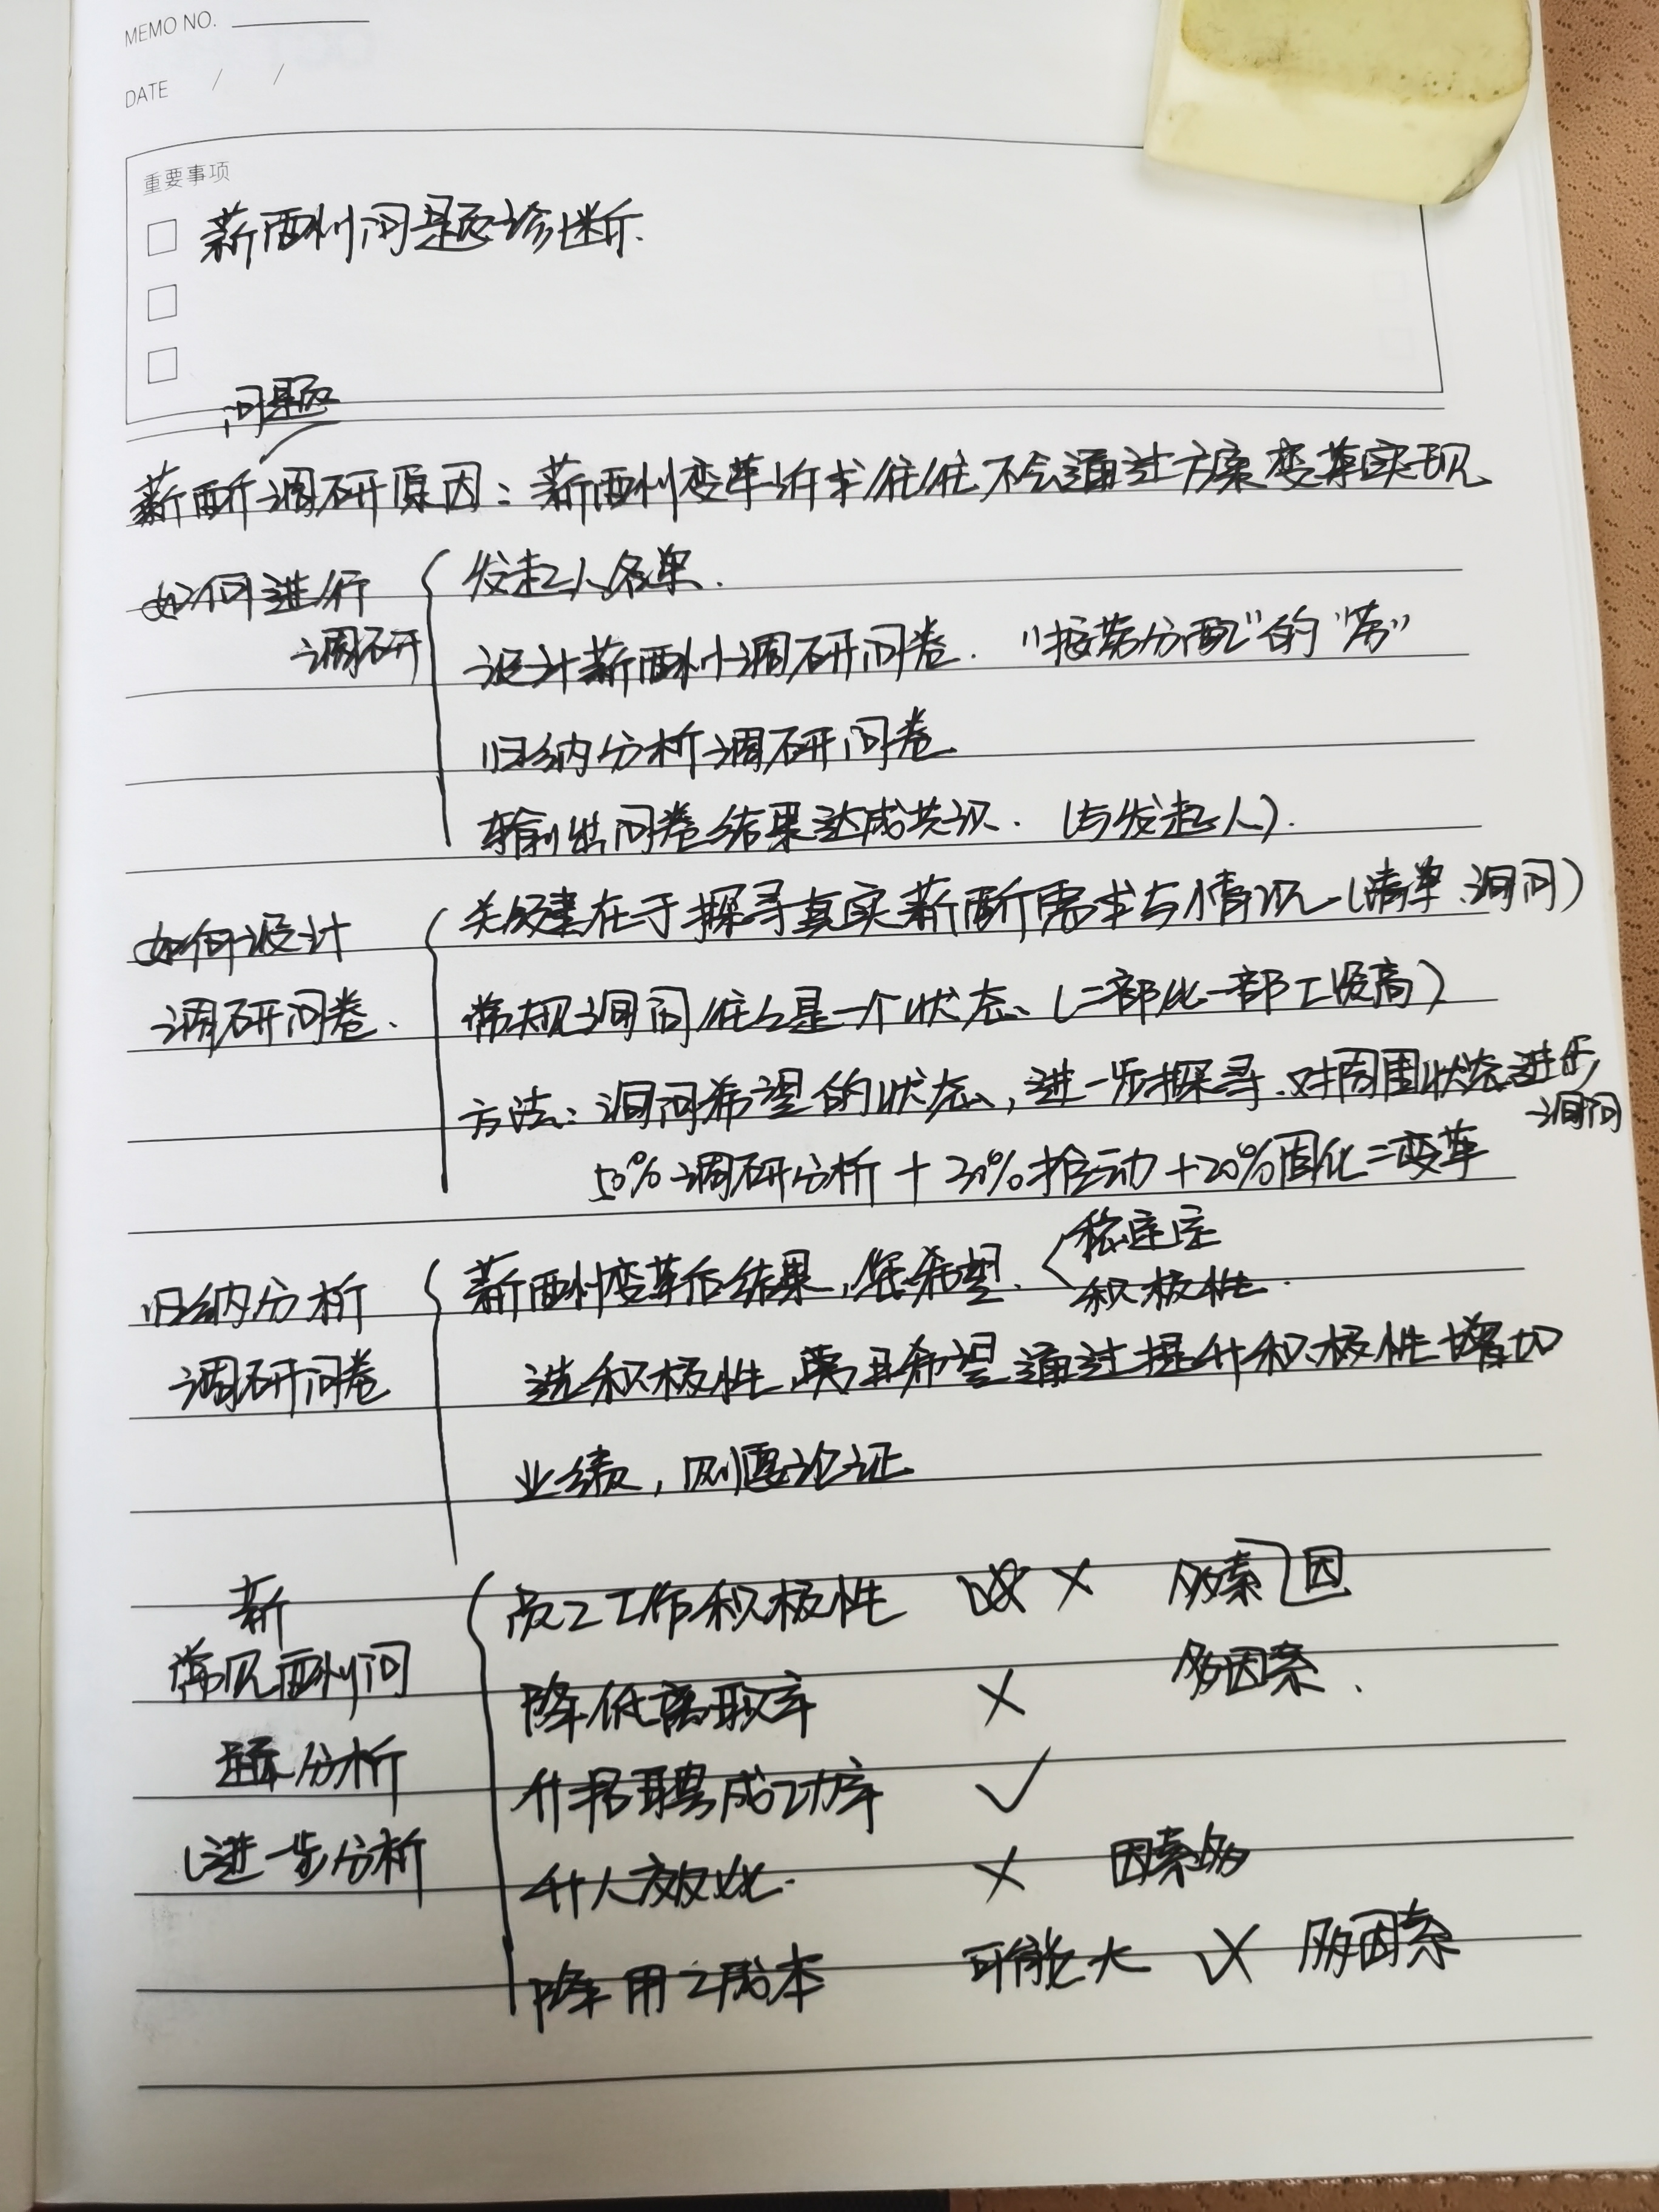 MEMO NO.
DATE / /
重要事项
薪酬问题诊断.
问题
薪酬调研原因：薪酬变革诉求往往不会通过方案变革实现
如何进行调研
发起人名单.
设计薪酬调研问卷. “按劳分配”的“劳”
归纳分析调研问卷
输出问卷结果达成共识. (与发起人).
如何设计调研问卷、
关键在于探寻真实薪酬需求与情况 (清单、询问)
常规询问往往是一个状态、(二部比一部工资高)
方法：询问希望的状态，进一步探寻.对周围状态进步询问
50%调研分析+30%推动+20%固化=变革
归纳分析调研问卷
薪酬变革后结果，您希望.
稳定
积极性.
选积极性,或且希望通过提升积极性增加
业绩，则要论证
薪
常见酬问
题分析
(进一步分析
员工工作积极性 × 多素因
降低离职率 × 多因素、
升招聘成功率 √
升人效比. × 因素多
降用工成本 可能大 × 多因素